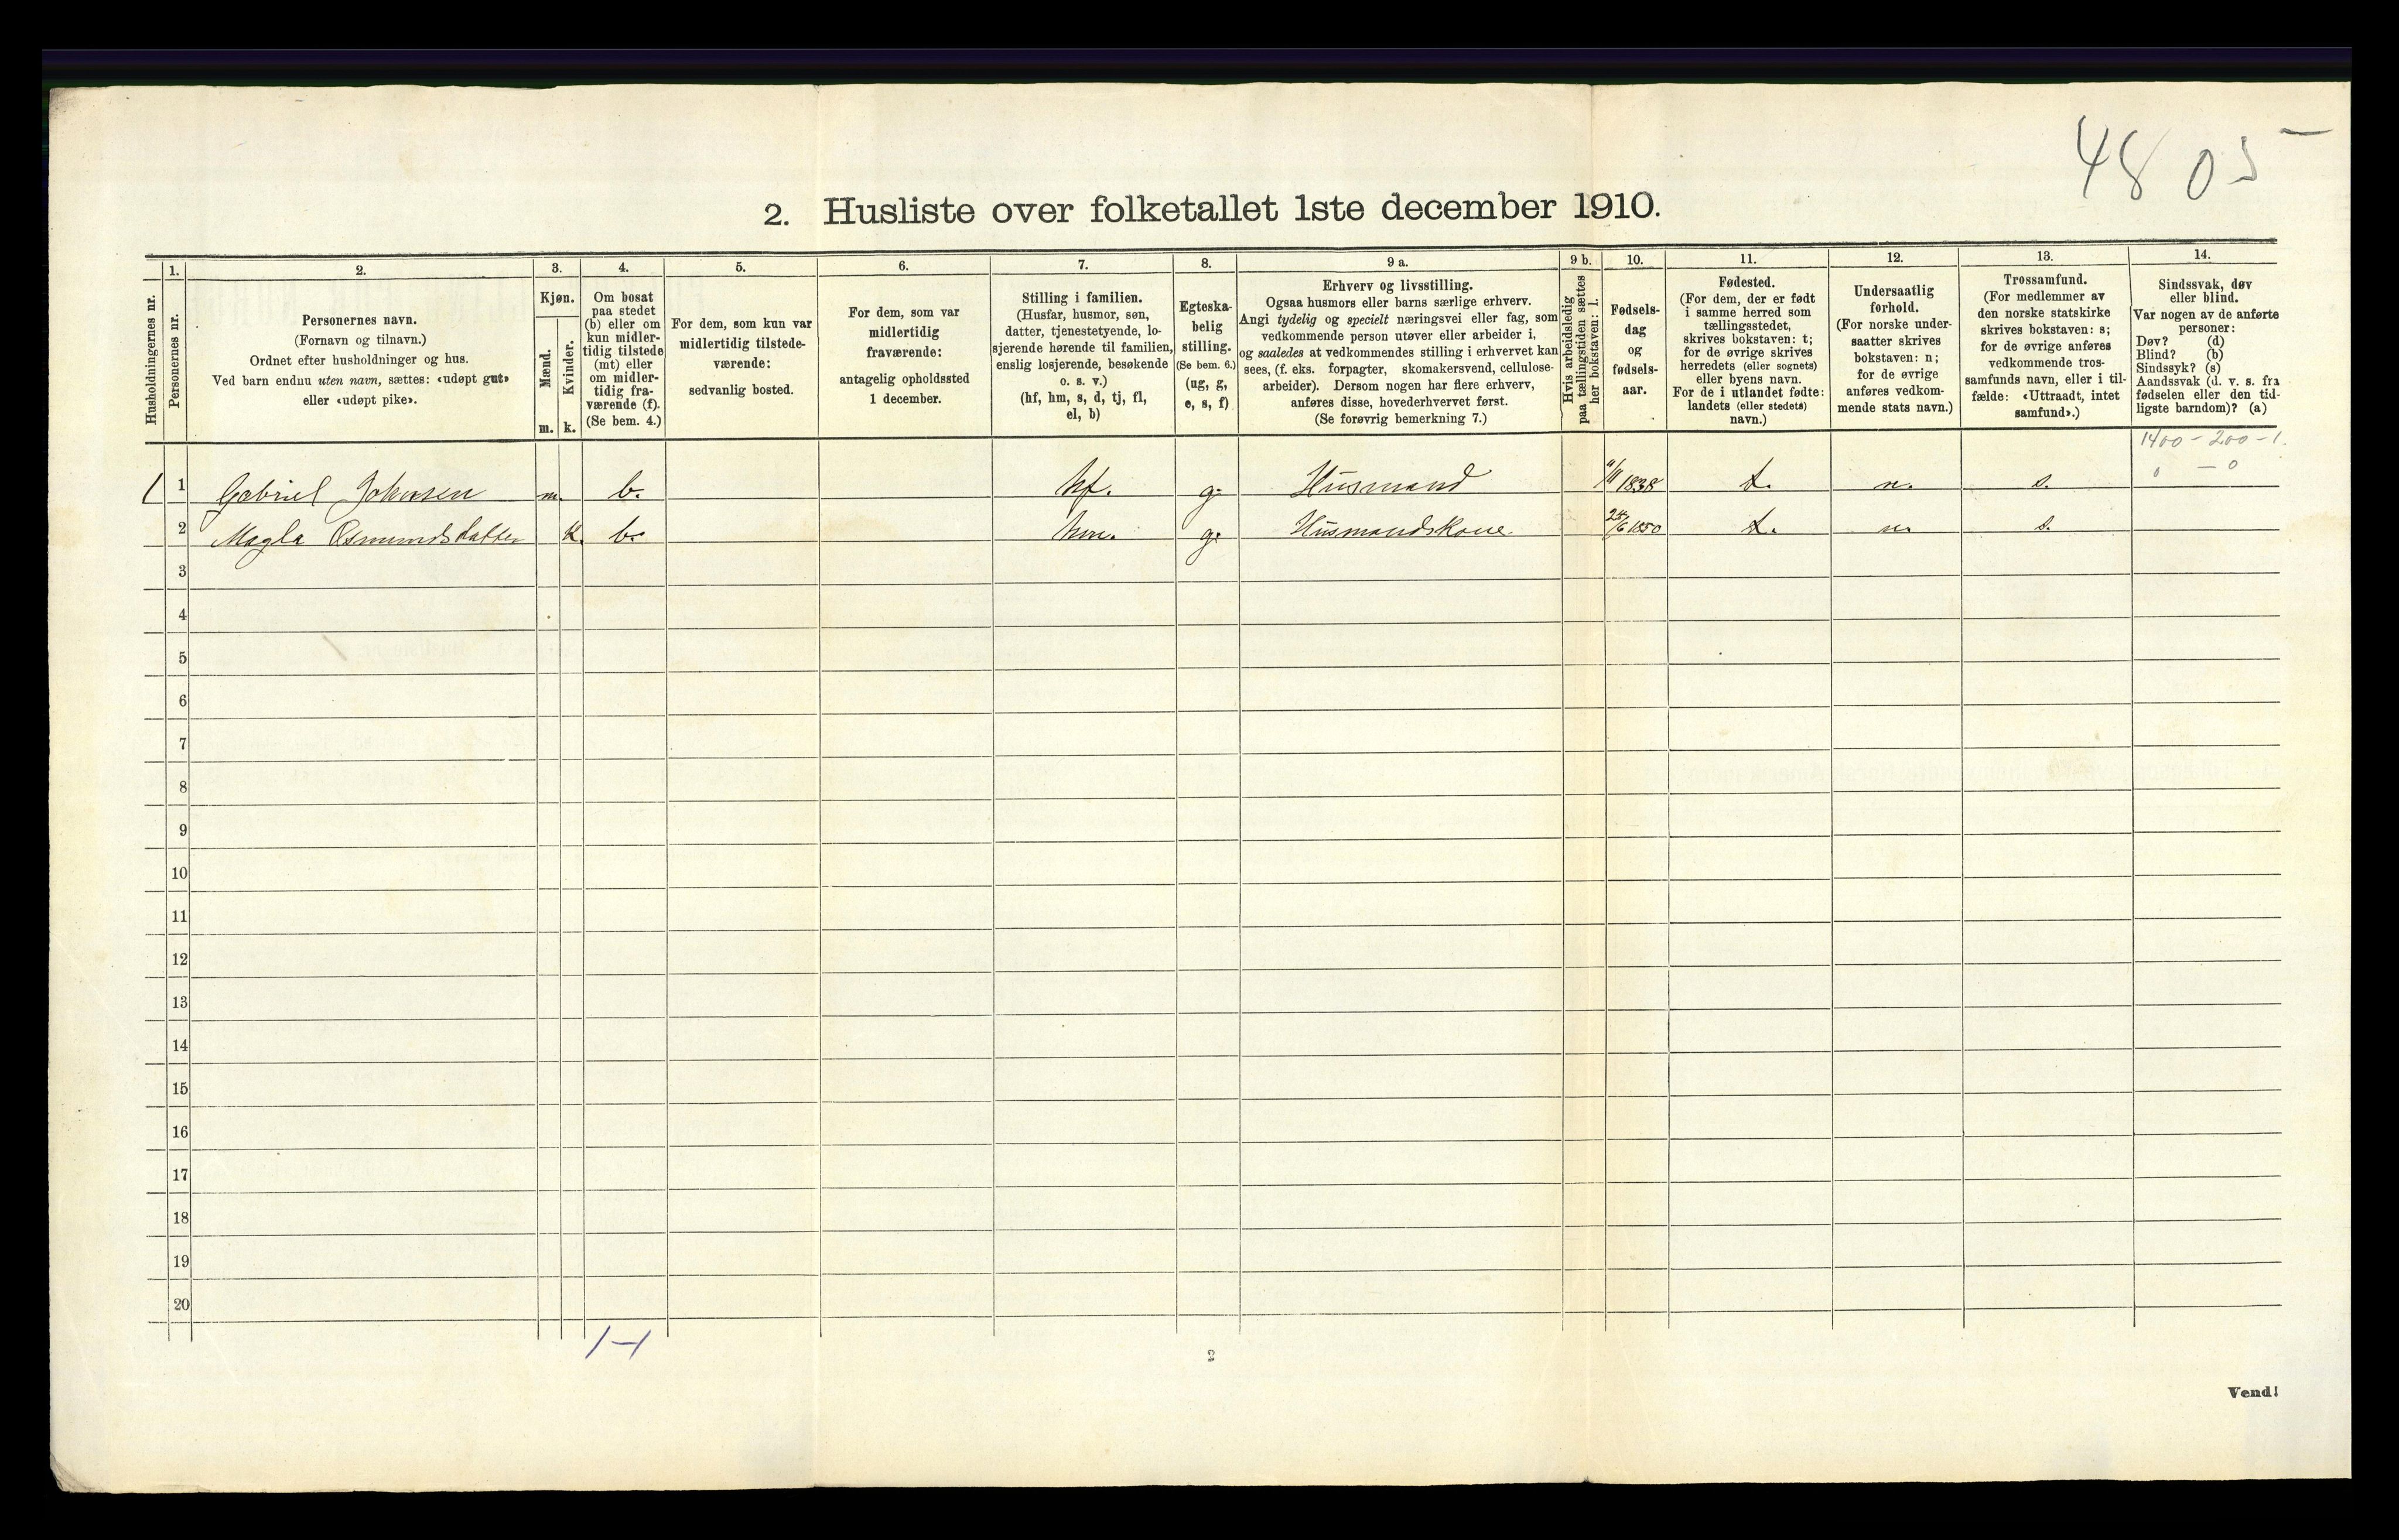 48 05 –
2. Husliste over folketallet 1ste december 1910.
Husholdningernes nr.
1. Personernes nr.
2. Personernes navn.
(Fornavn og tilnavn.)
Ordnet efter husholdninger og hus.
Ved barn endnu uten navn, sættes: «udøpt gut»
eller «udøpt pike».
3. Kjøn.
Mænd. m.
Kvinder. k.
4. Om bosat
paa stedet
(b) eller om
kun midler-
tidig tilstede
(mt) eller
om midler-
tidig fra-
værende (f).
(Se bem. 4.)
5. For dem, som kun var
midlertidig tilstede-
værende:
sedvanlig bosted.
6. For dem, som var
midlertidig
fraværende:
antagelig opholdssted
1 december.
7. Stilling i familien.
(Husfar, husmor, søn,
datter, tjenestetyende, lo-
sjerende hørende til familien,
enslig losjerende, besøkende
o. s. v.)
(hf, hm, s, d, tj, fl,
el, b)
8. Egteska-
belig
stilling.
(Se bem. 6.)
(ug, g,
e, s, f)
9 a. Erhverv og livsstilling.
Ogsaa husmors eller barns særlige erhverv.
Angi tydelig og specielt næringsvei eller fag, som
vedkommende person utøver eller arbeider i,
og saaledes at vedkommendes stilling i erhvervet kan
sees, (f. eks. forpagter, skomakersvend, cellulose-
arbeider). Dersom nogen har flere erhverv,
anføres disse, hovederhvervet først.
(Se forøvrig bemerkning 7.)
9 b. Hvis arbeidsledig
paa tællingstiden sættes
her bokstaven: l.
10. Fødsels-
dag
og
fødsels-
aar.
11. Fødested.
(For dem, der er født
i samme herred som
tællingsstedet,
skrives bokstaven: t;
for de øvrige skrives
herredets (eller sognets)
eller byens navn.
For de i utlandet fødte:
landets (eller stedets)
navn.)
12. Undersaatlig
forhold.
(For norske under-
saatter skrives
bokstaven: n;
for de øvrige
anføres vedkom-
mende stats navn.)
13. Trossamfund.
(For medlemmer av
den norske statskirke
skrives bokstaven: s;
for de øvrige anføres
vedkommende tros-
samfunds navn, eller i til-
fælde: «Uttraadt, intet
samfund».)
14. Sindssvak, døv
eller blind.
Var nogen av de anførte
personer:
Døv? (d)
Blind? (b)
Sindssyk? (s)
Aandssvak (d. v. s. fra
fødselen eller den tid-
ligste barndom)? (a)
1400 – 200 – 1.
0 – 0
1 1 Gabriel Johnsen m. b. hf. g. Husmand 1838 t. n. s.
2 Magla Osmundsdatter k. b. hm. g. Husmandskone 24/6 1850 t. n. s.
3
4
5
6
7
8
9
10
11
12
13
14
15
16
17
18
19
20
1–1
2
Vend!